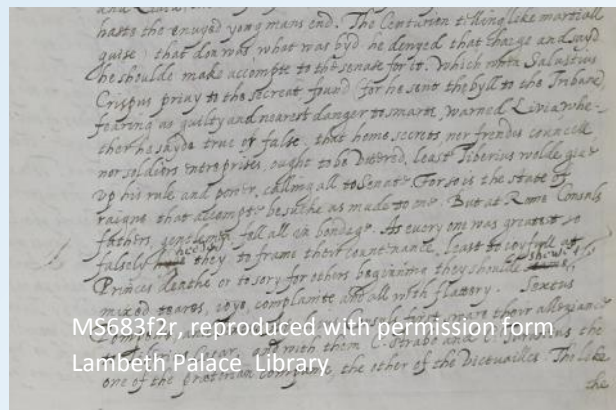 haste the envyed yong mans end. The Centurion telling like martiall
guise, that don was what was byd he denyed that charge and sayd
he shoulde make accompte to the senate for it. Which when Salustius
Crispus privy to the secreat found (for he sent the byll to the Tribune)
fearing as guilty and nearest danger to smarte, warned Livia whe-
ther he sayde true or false, that home secrets, nor frendes councell
nor soldiers enterprises, ought to be uttered, least Tiberius wolde give
up his rule and power, calling all to Senate. For so is the state of
raigne that accompte be suche as made to one. But at Rome Consuls
fathers, gentlemen fell all in bondage. As every one was greatest so
falsely they to frame their countenance, least to joyfull at
Princes deathe or to sory for others beginning they shoulde shewe
mixed teares, joye, complainte and all with flatery. Sextus
first sware their allegiance
and with them C. Strabo and C. Turanius the
one of the pretorian companie, the other of the victuailles. The like
the
MS683f2r, reproduced with permission form
Lambeth Palace Library